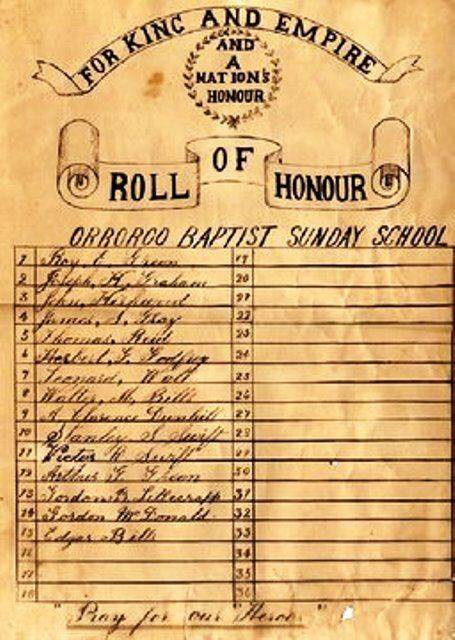 FOR KING AND EMPIRE
AND
A
NATION'S
HONOUR
ROLL OF HONOUR
ORROROO BAPTIST SUNDAY SCHOOL
1 Roy E. Green 19
2 Joseph, H, Graham 20
3 John, 21
4 James, S, Gray 22
5 Thomas, Reid 23
6 Herbert, J. Godfrey 24
7 Leonard, Wall 25
8 Walter, M, Bills 26
9 A Clarence Dunhill 27
10 Stanley S Swift 28
11 Victor R Swift 29
12 Arthur G. Green 30
13 Gordon B. 31
14 Gordon McDonald 32
15 Edgar Bills 33
16
17 35
18 36
"Pray for our Heroes"